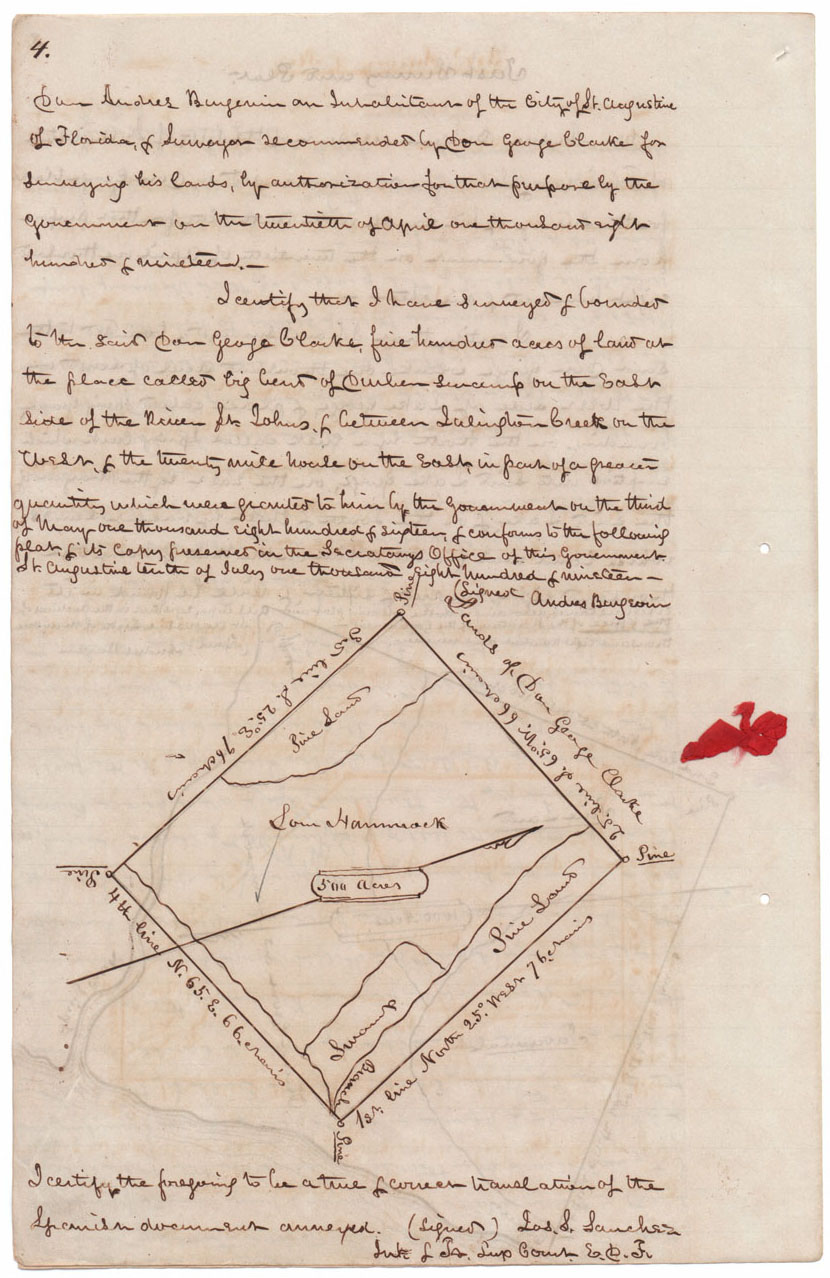 4.
Don Andres Burgevin an Inhabitant of the City of St. Augustine
of Florida, & Surveyor recommended by Don George Clarke for
surveying his lands, by authorization for that purpose by the
Government on the twentieth of April one thousand eight
hundred & nineteen.—
I certify that I have surveyed & bounded
to the said Don George Clarke, five hundred acres of land at
the place called big bend of Durben swamp on the East
side of the River St. Johns, & between Julington Creek on the
West, & the twenty mile house on the East, in part of a greater
quantity which were granted to him by the Government on the third
of May one thousand eight hundred & sixteen, & conforms to the following
plat, & its Copy preserved in the Secretarys Office of this Government.
St. Augustine tenth of July one thousand eight hundred & nineteen—
(Signed Andres Burgevin
Pine
Lands of Don George Clarke
3rd line S. 25° E. 76 chains
2d. line S. 65° W. 66 chains
Pine Land
Low Hammock
Pine
Pine
500 Acres
Pine Land
4th line N. 65. E. 66 chains
Swamp
Branch
1st. line North 25° West 76 chains
Pine
I certify the foregoing to be a true & correct translation of the
Spanish document annexed. (signed) Jos. S. Sanchez
Int. & Tr. Sup Court. E. D. F.